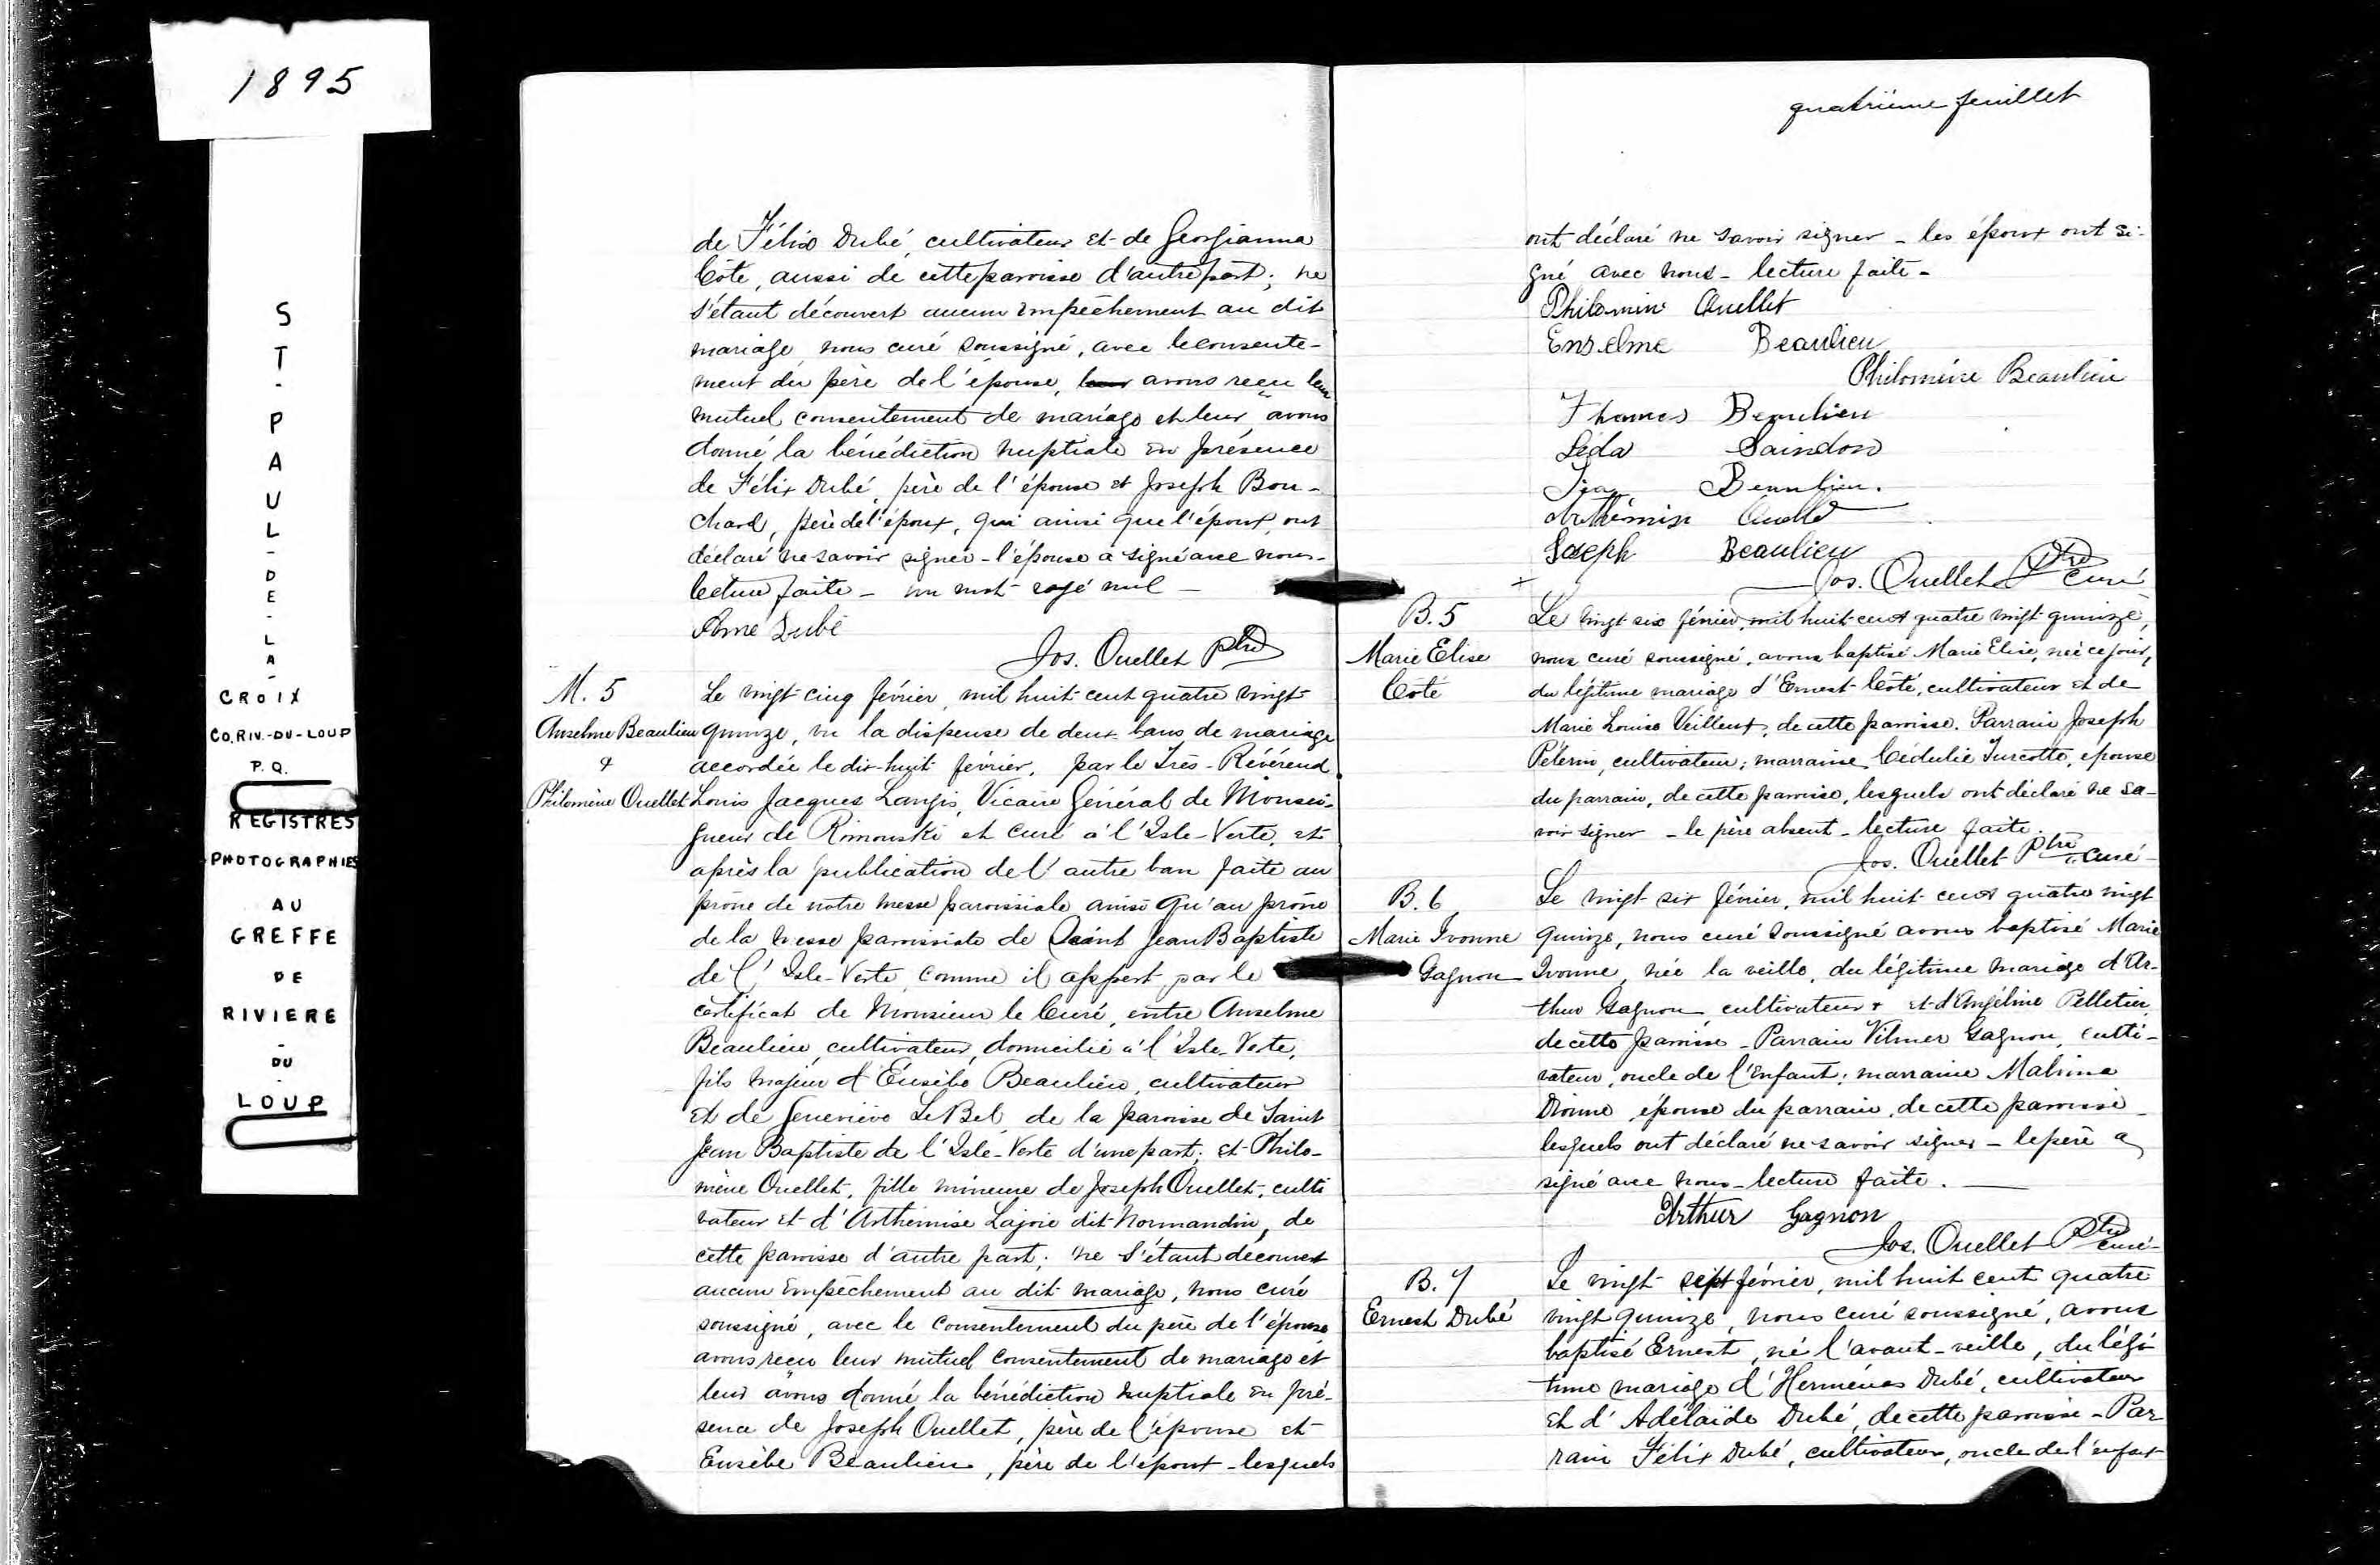 1895
ST-PAUL-DE-LA-
CROIX
CO. RIV.-DU-LOUP
P.Q.
REGISTRES
PHOTOGRAPHIES
AU
GREFFE
DE
RIVIERE
-
DU
-
LOUP
de Félix Dubé, cultivateur et de Georgianna
Côté, aussi de cette paroisse d'autre part; ne
s'étant découvert aucun empêchement au dit
mariage, nous curé soussigné, avec le consente-
ment du père de l'épouse, avons reçu leur
mutuel consentement de mariage et leur avons
donné la bénédiction nuptiale en présence
de Félix Dubé, père de l'épouse et Joseph Bou-
chard, père de l'époux, qui ainsi que l'époux, ont
déclaré ne savoir signer - l'épouse a signé avec nous -
lecture faite - un mot rayé nul -
Dubé
Jos. Ouellet Ptre
M. 5
Anselme Beaulieu
&
Philomène Ouellet
Le vingt-cinq février, mil huit cent quatre vingt
quinze, vu la dispense de deux bans de mariage
accordée le dix-huit février, par le Très-Révérend
Louis Jacques Langis, Vicaire Général de Monsei-
gneur de Rimouski et curé à l'Isle-Verte, et
après la publication de l'autre ban faite au
prône de notre messe paroissiale ainsi qu'au prône
de la messe paroissiale de Saint Jean Baptiste
de l'Isle-Verte, comme il appert par le
certificat de Monsieur le Curé, entre Anselme
Beaulieu, cultivateur, domicilié à l'Isle-Verte,
fils majeur d'Eusèbe Beaulieu, cultivateur
et de Geneviève LeBel de la paroisse de Saint
Jean Baptiste de l'Isle-Verte d'une part; et Philo-
mène Ouellet, fille mineure de Joseph Ouellet, culti
vateur et d'Arthémise Lajoie dit Normandin, de
cette paroisse d'autre part; ne s'étant découvert
aucun empêchement au dit mariage, nous curé
soussigné, avec le consentement du père de l'épouse
avons reçu leur mutuel consentement de mariage et
leur avons donné la bénédiction nuptiale en pré-
sence de Joseph Ouellet, père de l'épouse et
Eusèbe Beaulieu, père de l'époux - lesquels
quatrième feuillet
ont déclaré ne savoir signer - les époux ont si-
gné avec nous - lecture faite -
Philomin Ouellet
Enselme Beaulieu
Philomène Beaulieu
Thomas Beaulieu
Léda Saindon
Beaulieu
Arthémise Ouellet
Joseph Beaulieu
Jos. Ouellet Ptre
curé
B. 5
Marie Elise
Côté
Le vingt six février, mil huit-cent quatre vingt-quinze,
nous curé soussigné, avons baptisé Marie Elise, née ce jour,
du légitime mariage d'Ernest Côté, cultivateur et de
Marie Louise Veilleux, de cette paroisse. Parrain Joseph
Pélerin, cultivateur; marraine Cédulie Turcotte, épouse
du parrain, de cette paroisse, lesquels ont déclaré ne sa-
voir signer - le père absent - lecture faite.
Jos. Ouellet Ptre curé
B. 6
Marie Ivonne
Gagnon
Le vingt-six février, mil huit-cent quatre vingt
quinze, nous curé soussigné avons baptisé Marie
Ivonne, née la veille, du légitime mariage d'Ar-
thur Gagnon, cultivateur + et d'Angéline Pelletier,
de cette paroisse - Parrain Vilmer Gagnon, culti-
vateur, oncle de l'enfant; marraine Malvina
Dionne, épouse du parrain, de cette paroisse -
lesquels ont déclaré ne savoir signer - le père a
signé avec nous - lecture faite.
Arthur Gagnon
Jos. Ouellet Ptre
curé
B. 7
Ernest Dubé
Le vingt sept février, mil huit cent quatre
vingt quinze, nous curé soussigné, avons
baptisé Ernest, né l'avant-veille, du légi
time mariage d'Herménas Dubé, cultivateur
et d'Adélaïde Dubé, de cette paroisse - Par
rain Félix Dubé, cultivateur, oncle de l'enfant